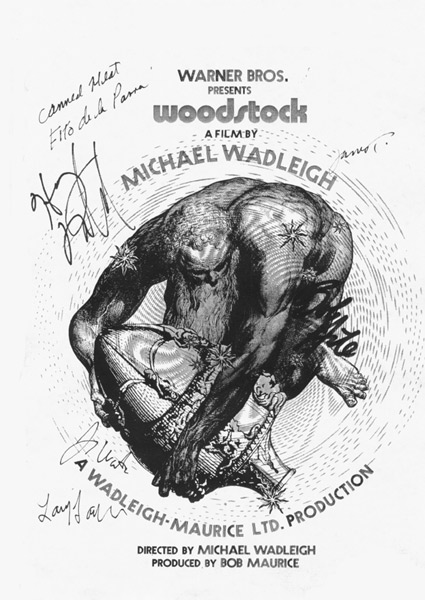 Canned Heat
Fito de la Parra
WARNER BROS.
PRESENTS
woodstock
A FILM BY
MICHAEL WADLEIGH
A WADLEIGH-MAURICE LTD. PRODUCTION
DIRECTED BY MICHAEL WADLEIGH
PRODUCED BY BOB MAURICE